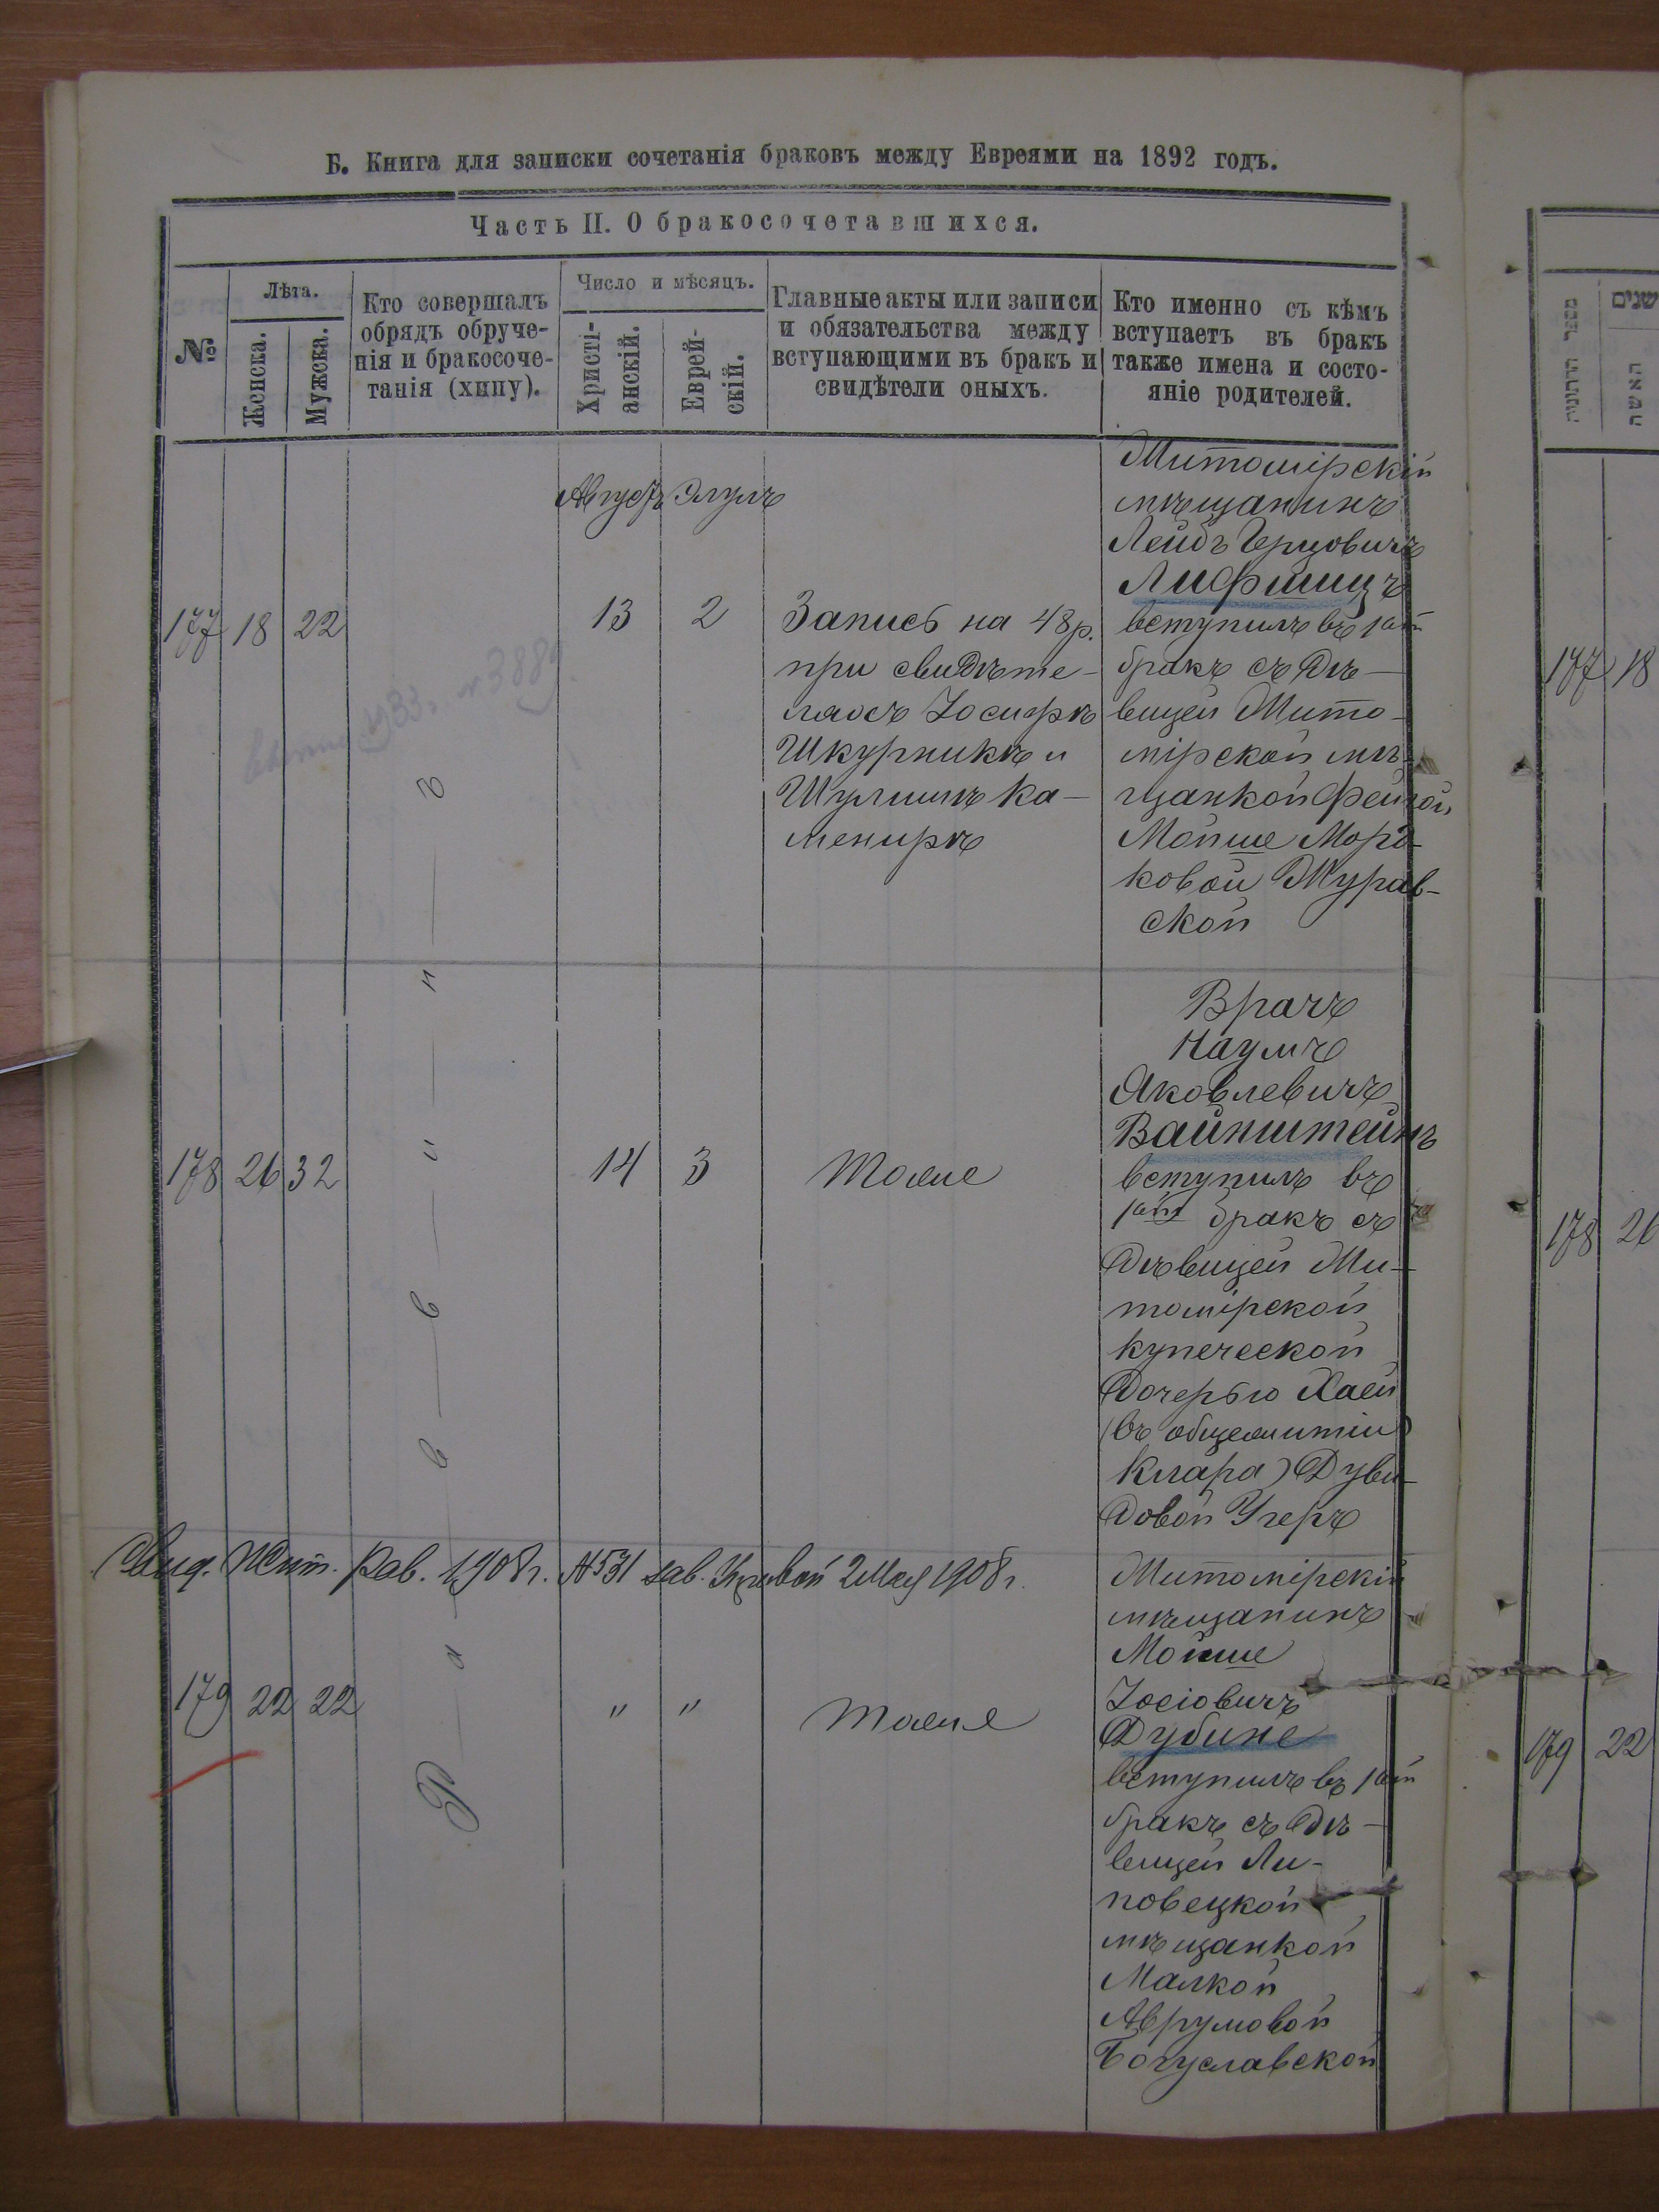 Б. Книга для записки сочетанія браковъ между Евреями на 1892 годъ.
Часть II. О бракосочетавшихся.
№
Лѣта.
Женска.
Мужска.
Кто совершалъ
обрядъ обруче-
нія и бракосоче-
танія (хипу).
Число и мѣсяцъ.
Христі-
анскій.
Еврей-
скій.
Главные акты или записи
и обязательства между
вступающими въ бракъ и
свидѣтели оныхъ.
Кто именно съ кѣмъ
вступаетъ въ бракъ
также имена и состо-
яніе родителей.
Августъ Элулъ
177 18 22
13 2
Запись на 48 р.
при свидѣте-
ляхъ Іосифѣ
Шкурникѣ и
Шулимѣ Ка-
менирѣ
Житомірскій
мѣщанинъ
Лейбъ Герцовичъ
Лифшицъ
вступилъ въ 1ый
бракъ съ дѣ-
вицей Жито-
мірской мѣ-
щанкой Фейгой
Мойше Морд-
ковой Журав-
ской
178 26 32
14 3
Тоже
Врачъ
Наумъ
Яковлевичъ
Вайнштейнъ
вступилъ въ
1ый бракъ съ
дѣвицей Жи-
томірской
купеческой
дочерью Хаей
(въ общежитіи
Клара) Дуви-
довой Угеръ
Свид. Жит. Рав. 1908 г. № 531 2 Мая 1908 г.
179 22 22
" "
Тоже
Житомірскій
мѣщанинъ
Мойше
Іосіовичъ
Дубине
вступилъ въ 1ый
бракъ съ дѣ-
вицей Ли-
повецкой
мѣщанкой
Малкой
Аврумовой
Богуславской
Р а в в и н ъ
שנים
האשה
177 18
178 26
179 22